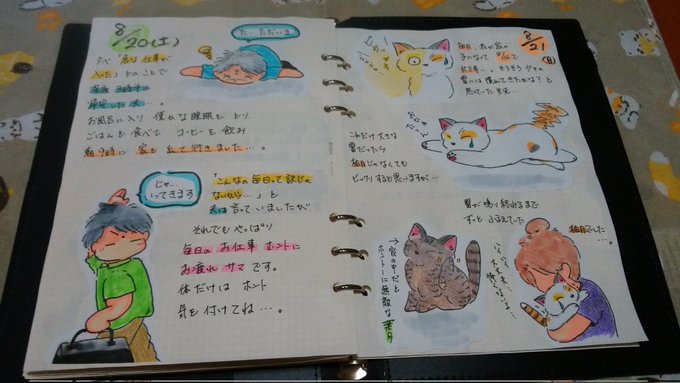 8/20(土)
た…ただいま
夕べ「急な仕事が
入た」とのことで
深夜3時半に
帰宅した夫…。
お風呂に入り 僅かな睡眠を とり
ごはんを食べて コーヒーを飲み
朝9時に家を出て行きました…。
じゃ…
いってきます
「こんなの毎日って訳じゃ
ないから…」と
夫は言っていましたが
それでもやっぱり
毎日のお仕事ホントに
お疲れサマです。
体だけは ホント
気を付けてね…。
8/21
(日)
柚月、我が家の
子になって
雷には慣れてきたかな?と
思っていたら…
これだけ大きな
雷だったら
柚月じゃなくても
ビックリすると思いますが…
雷が鳴り終わるまで
ずっとふるえていた
柚月でした
…。
→家の中だと
ホントーに無敵な
葉月